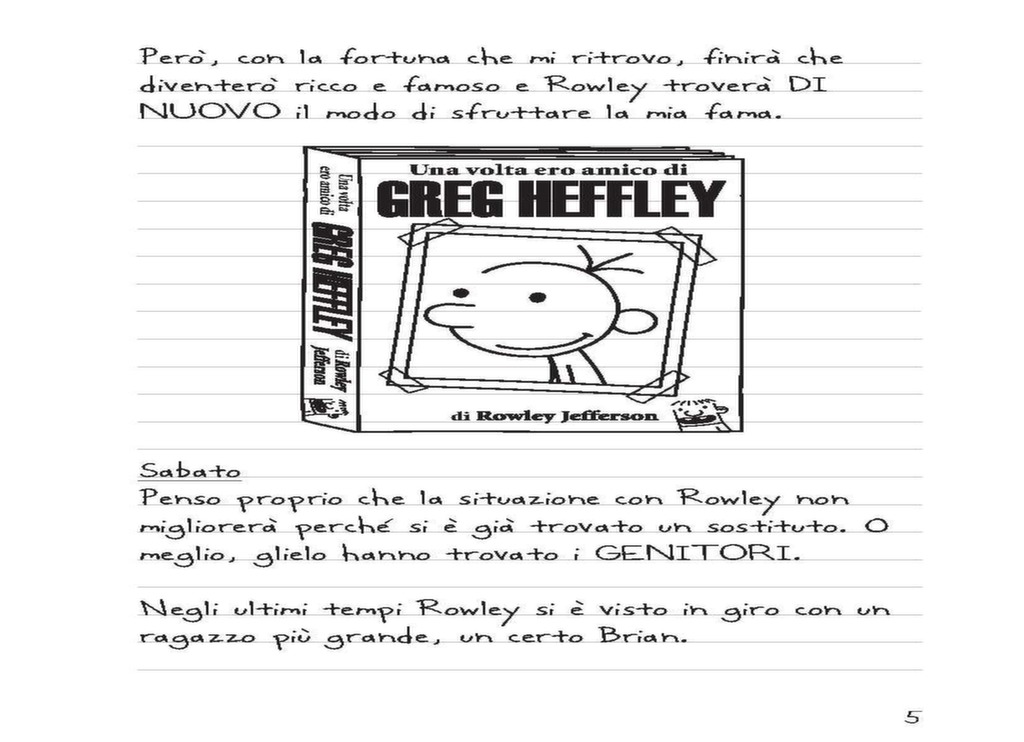 Però, con la fortuna che mi ritrovo, finirà che
diventerò ricco e famoso e Rowley troverà DI
NUOVO il modo di sfruttare la mia fama.
Una volta ero amico di
GREG HEFFLEY
di Rowley Jefferson
Una volta
ero amico di
GREG HEFFLEY
di Rowley
Jefferson
Sabato
Penso proprio che la situazione con Rowley non
migliorerà perché si è già trovato un sostituto. O
meglio, glielo hanno trovato i GENITORI.
Negli ultimi tempi Rowley si è visto in giro con un
ragazzo più grande, un certo Brian.
5